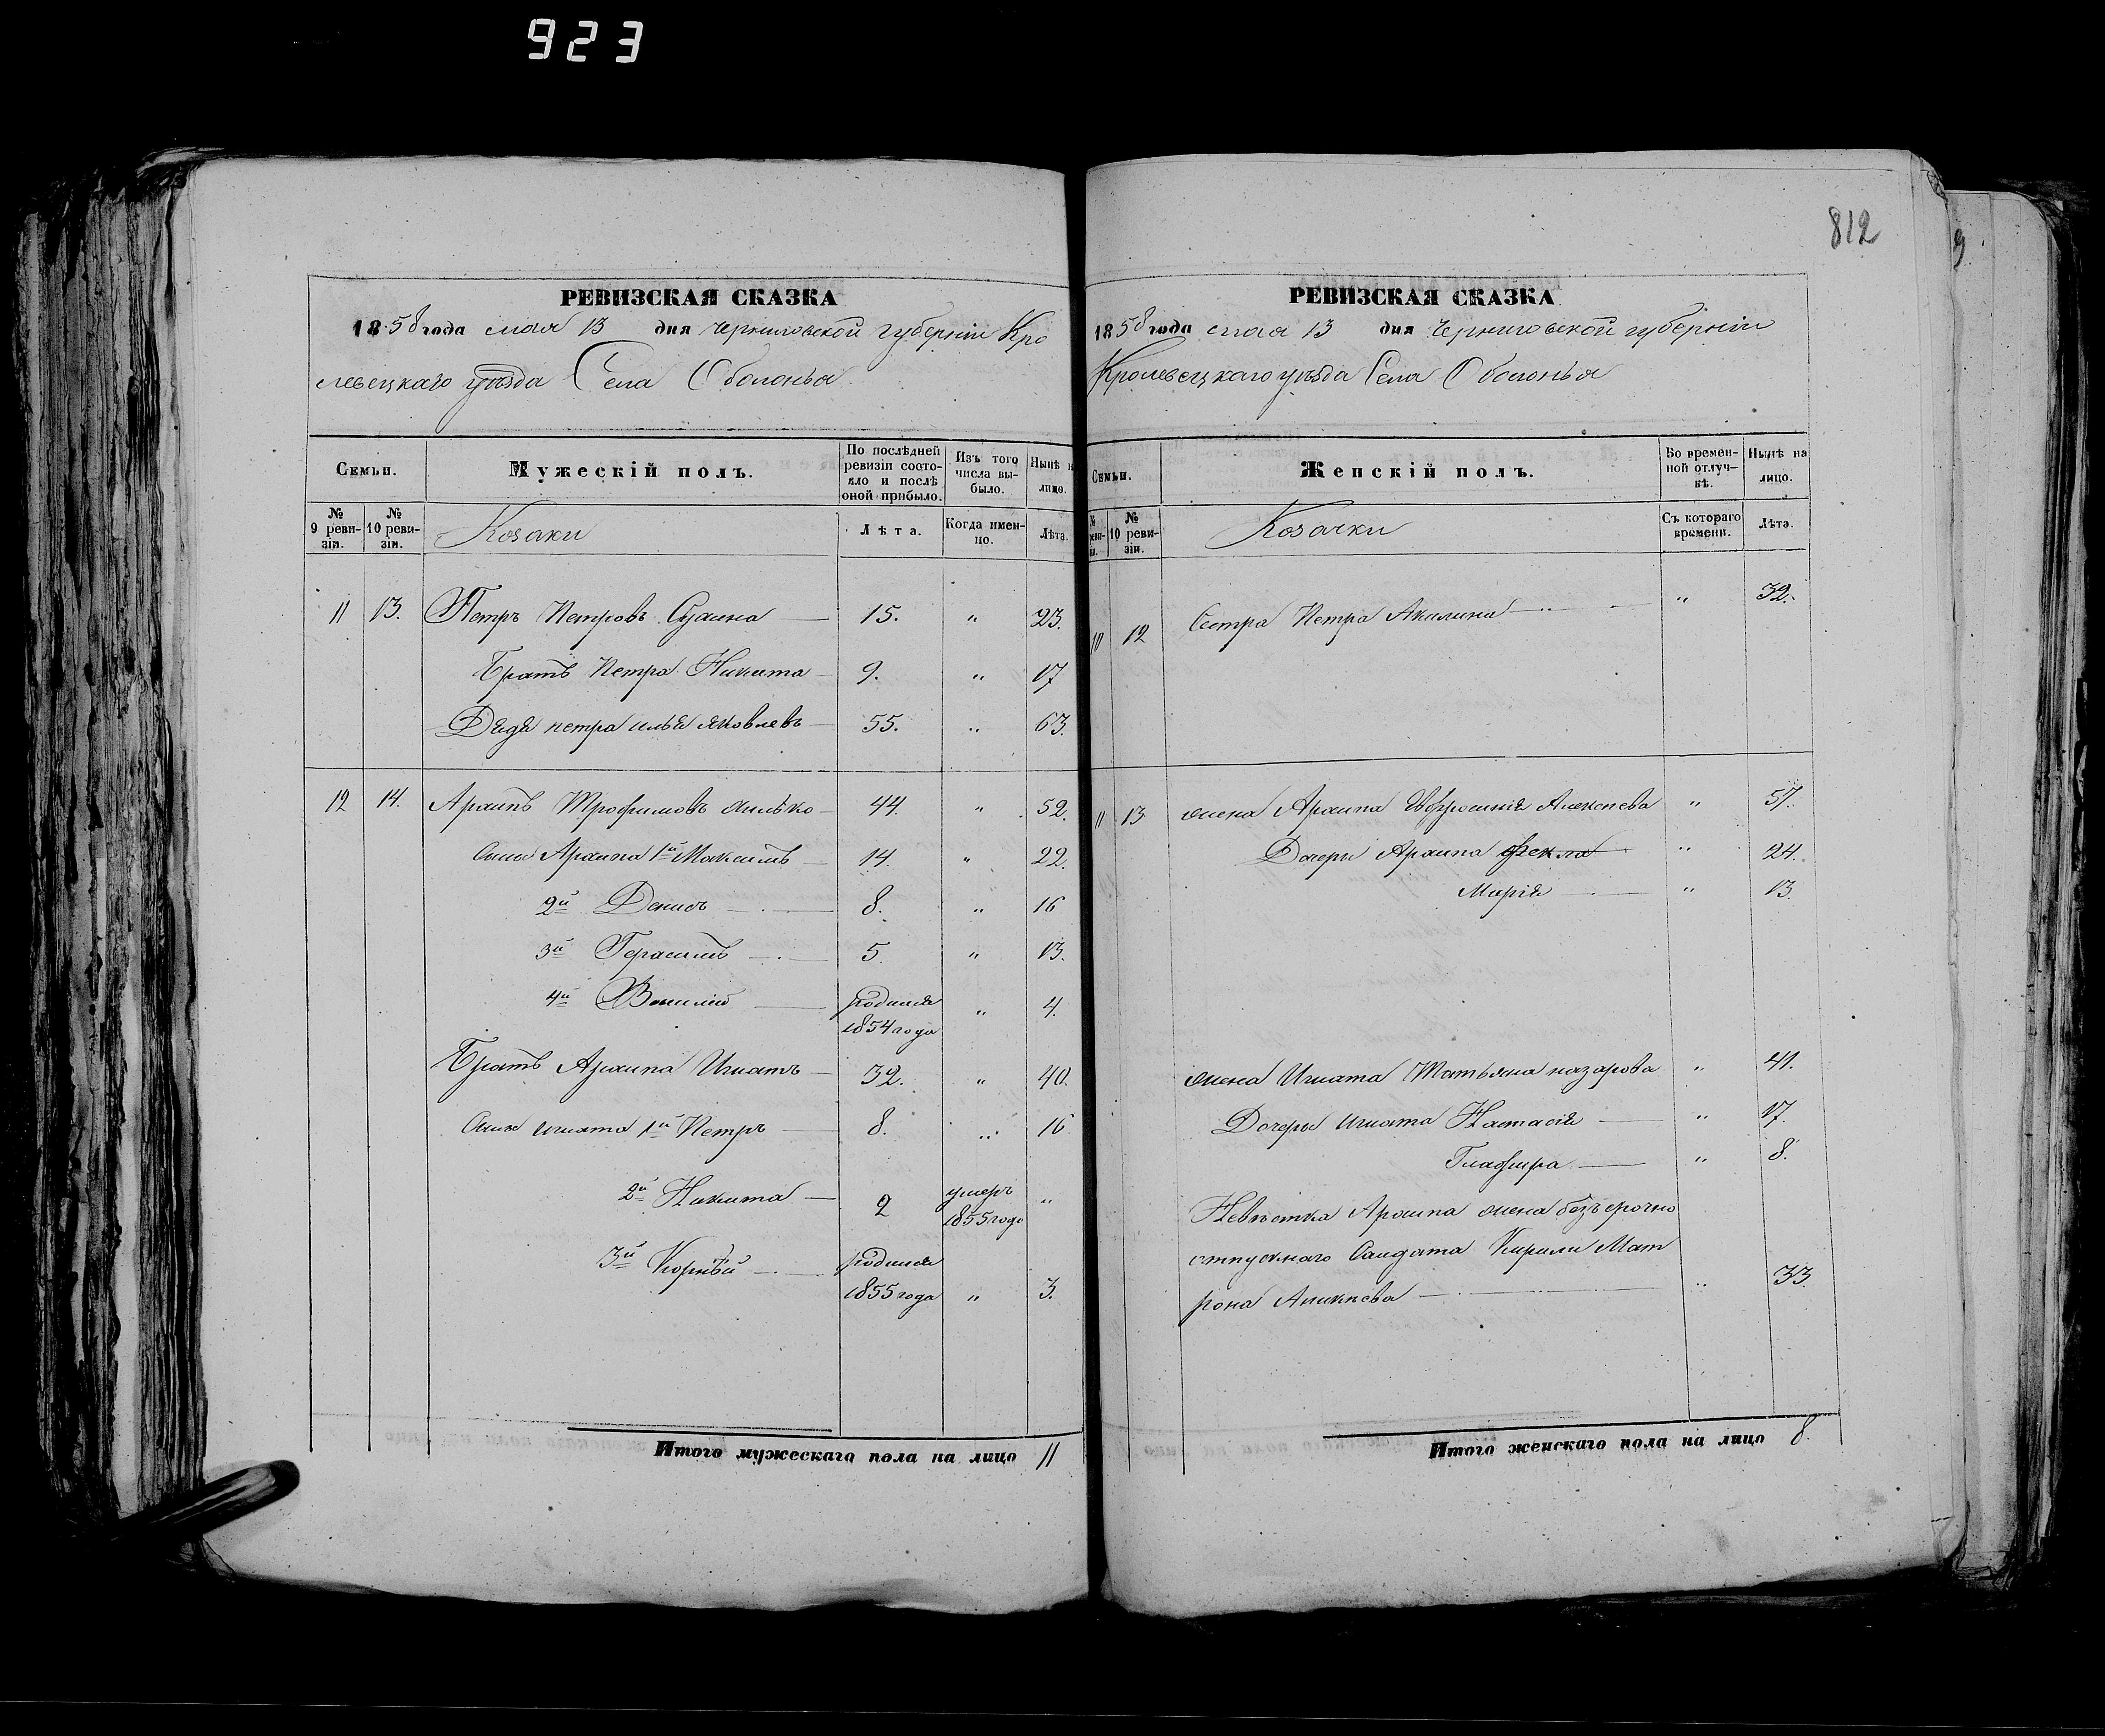 923
812
9
РЕВИЗСКАЯ СКАЗКА
1858 года мая 13 дня Черниговской губерніи Кро
левецкаго уѣзда Села Оболонья
Семьи.
Мужескій полъ.
По послѣдней ревизіи состояло и послѣ оной прибыло.
Изъ того числа выбыло.
Нынѣ н лицо.
№ 9 ревизіи.
№ 10 ревизіи.
Козаки
Лѣта.
Когда именно.
Лѣта.
11 13. Петръ Петровъ 15. " 23.
Братъ Петра Никита 9. " 17
Дядя петра илья яковлевъ 55. " 63.
12 14. Архипъ Трофимовъ 44. " 52.
Сыны Архипа 1й Максимъ 14. " 22.
2й Денисъ 8. " 16
3й Герасимъ 5 " 13.
4й Василій родился 1854 года " 4.
Братъ Архипа Игнатъ 32. " 40.
Сыны игната 1й Петръ 8. " 16
2й Никита 2 умеръ 1855 года "
3й Корнѣй родился 1855 года " 3.
Итого мужескаго пола на лицо 11
РЕВИЗСКАЯ СКАЗКА
1858 года мая 13 дня Черниговской губерніи
Кролевецкаго уѣзда Села Оболонья
Семьи.
Женскій полъ.
Во временной отлучкѣ.
Нынѣ на лицо.
№ реви-
№ 10 ревизіи.
Козачки
Съ котораго времени.
Лѣта.
10 12 Сестра Петра Акилина " 32.
11 13 жена Архипа Евфросинія Алексѣева " 57.
Дочери Архипа Фекла " 24.
Марія " 13.
жена Игната Татьяна назарова " 41.
Дочеры игната Настасія " 17.
Глафира " 8.
Невѣстка Архипа жена безъсрочно
отпускнаго Салдата Кирила Мат
рона Аникѣева " 33.
Итого женскаго пола на лицо 8.